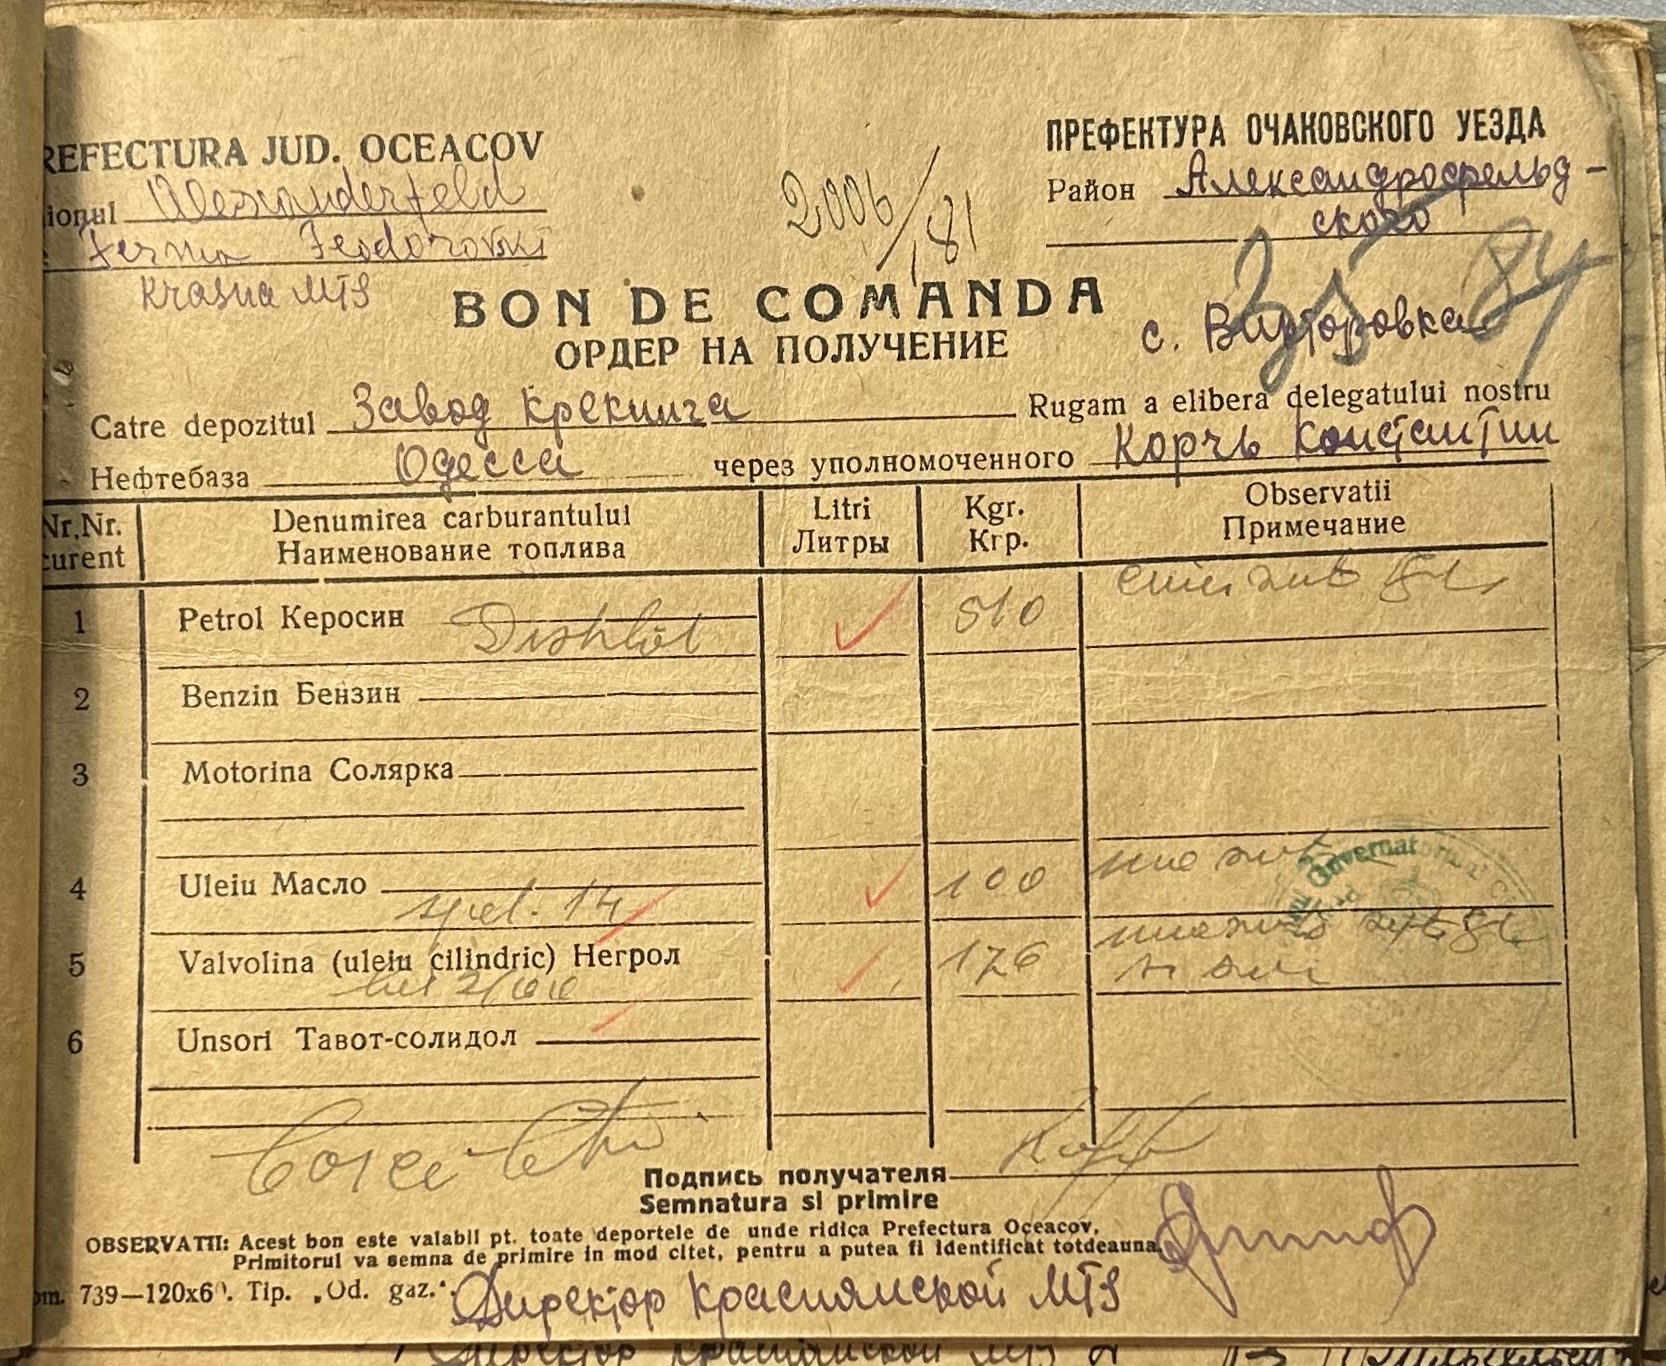 REFECTURA JUD. OCEACOV
ПРЕФЕКТУРА ОЧАКОВСКОГО УЕЗДА
ionul Alexanderfeld
Район Александрофельд-
ского
Ferma Feodorovski
Krasna MTS
2006/181
35 84
BON DE COMANDA
ОРДЕР НА ПОЛУЧЕНИЕ
с. Викторовка
Catre depozitul Завод Крекинга Rugam a elibera delegatului nostru
Нефтебаза Одесса через уполномоченного Корчь Константин
Nr.Nr. curent
Denumirea carburantului
Наименование топлива
Litri
Литры
Kgr.
Кгр.
Observatii
Примечание
1 Petrol Керосин 510
2 Benzin Бензин
3 Motorina Солярка
4 Uleiu Масло 100
5 Valvolina (uleiu cilindric) Негрол 176
6 Unsori Тавот-солидол
Guvernatorul
Подпись получателя
Semnatura si primire
OBSERVATII: Acest bon este valabil pt. toate deportele de unde ridica Prefectura Oceacov,
Primitorul va semna de primire in mod citet, pentru a putea fi identificat totdeauna.
om. 739—120x60. Tip. „Od. gaz.“.
Директор Краснянской MTS